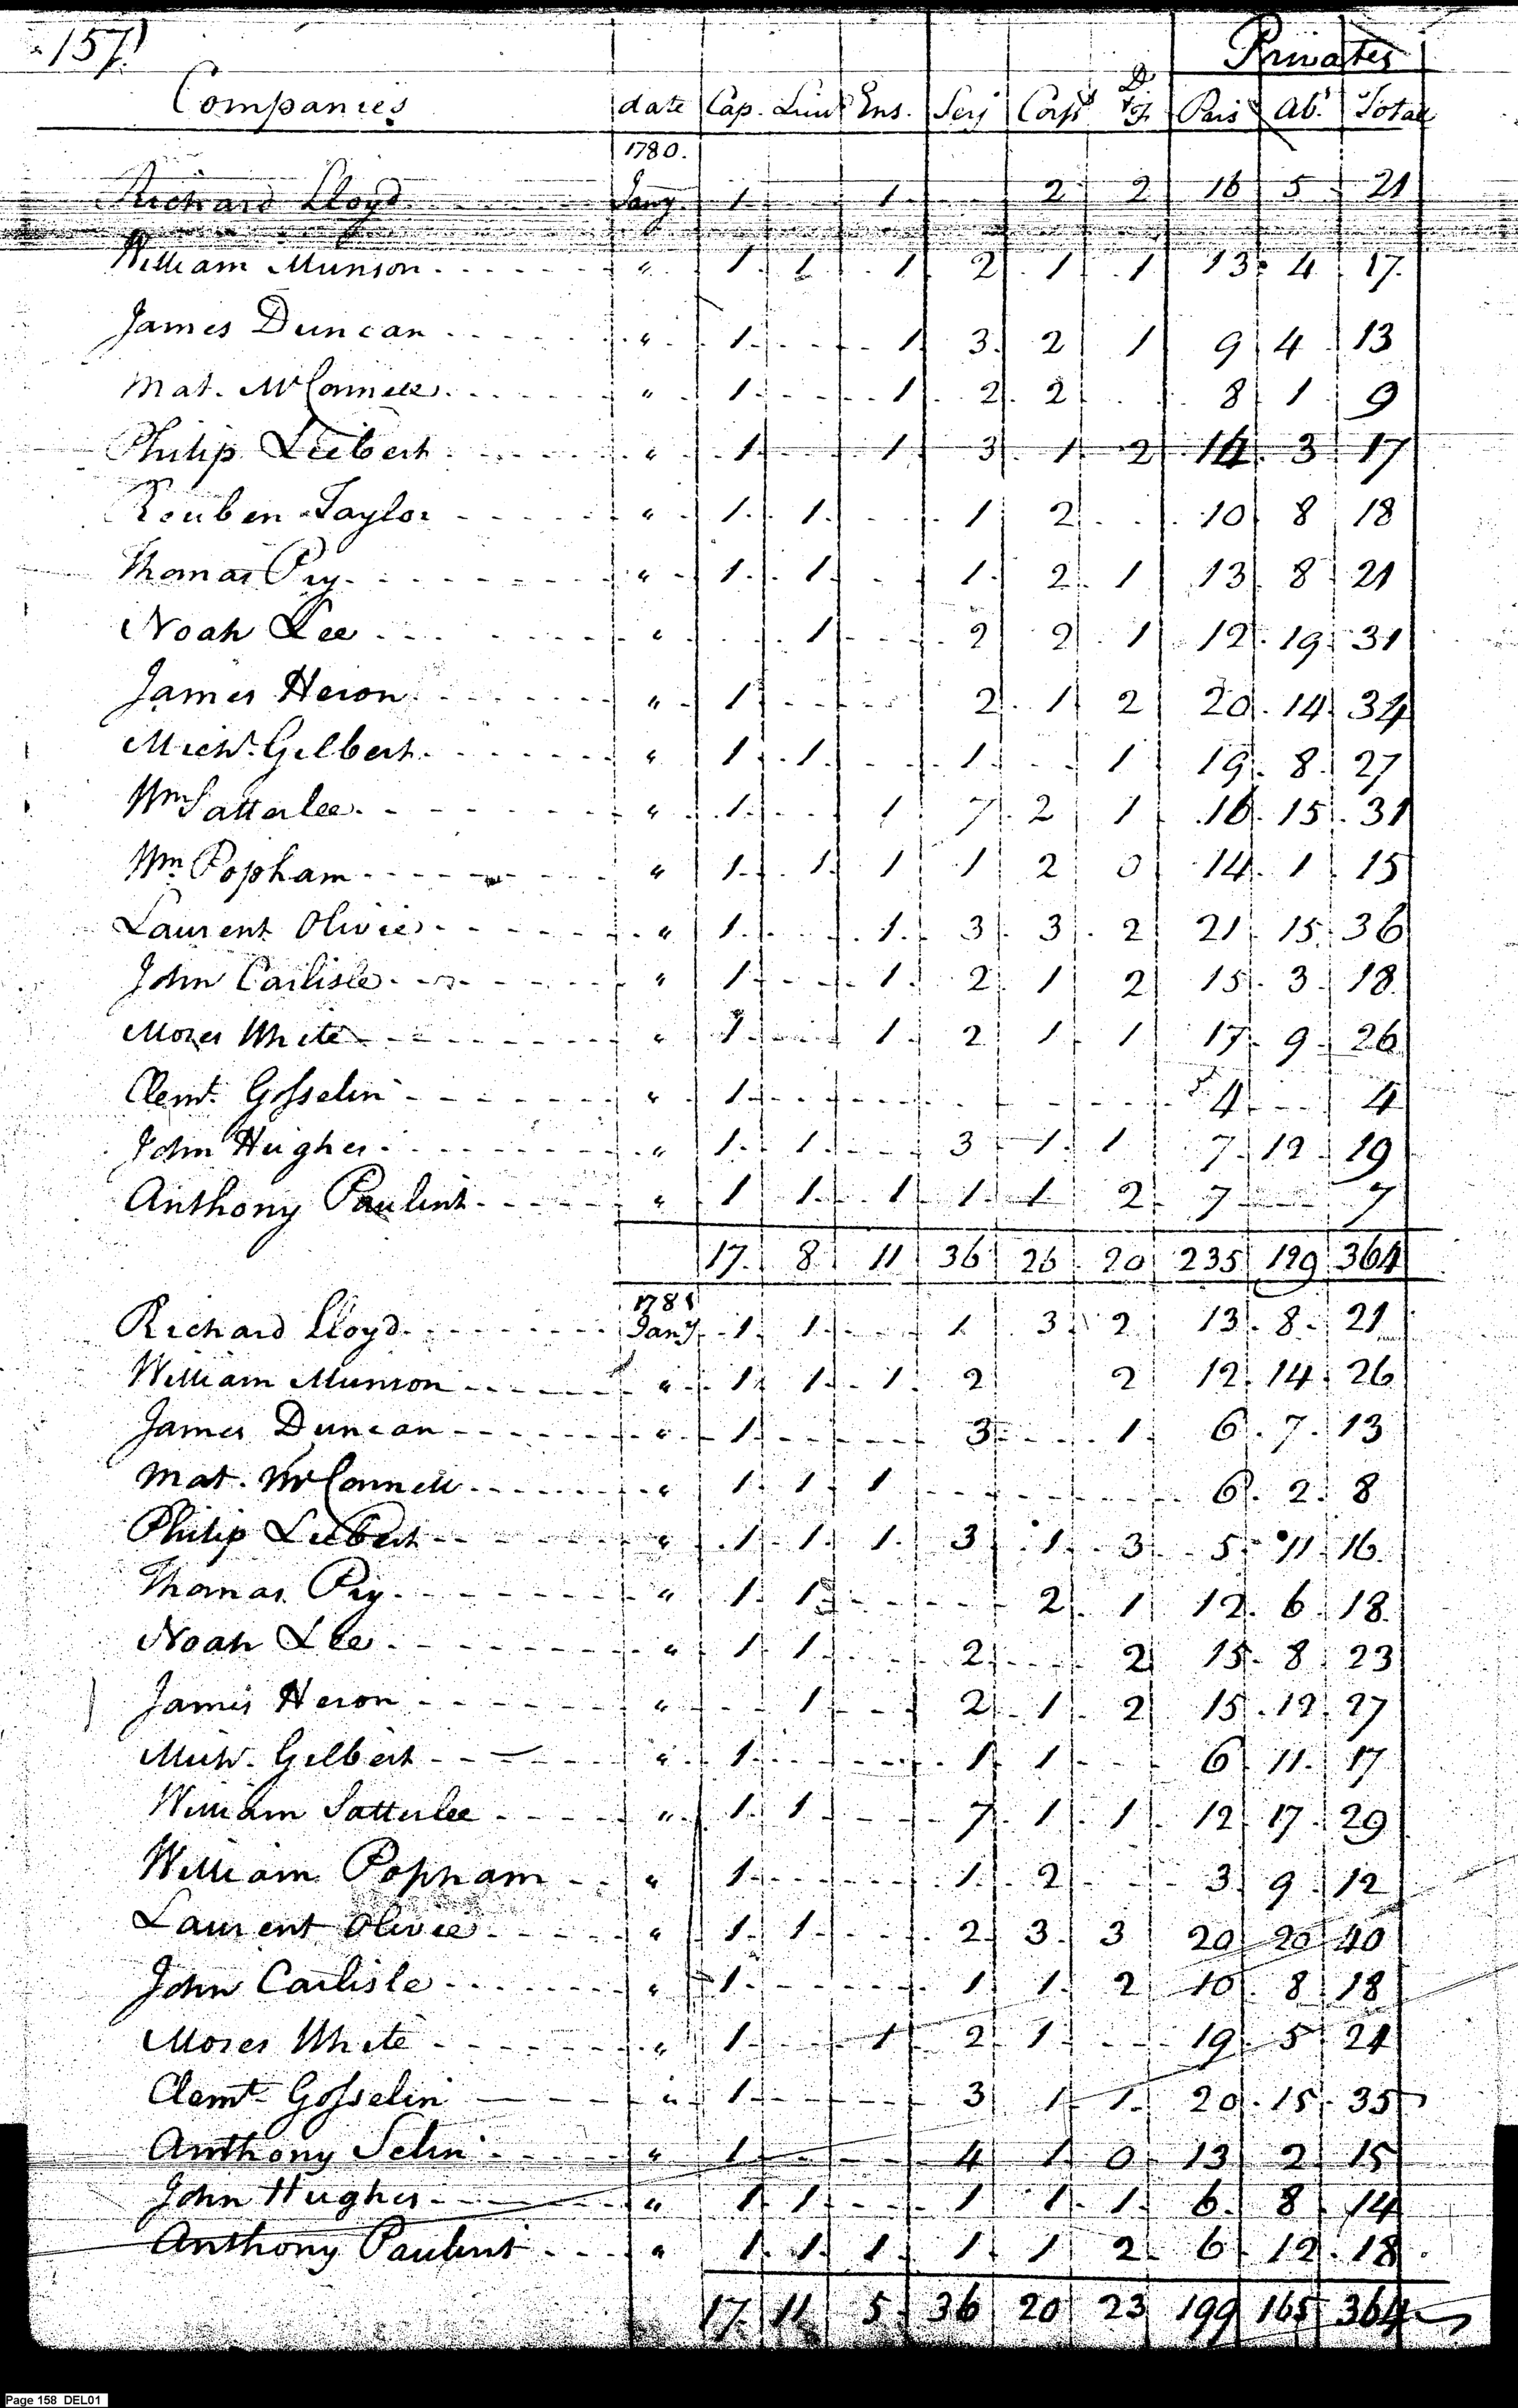 157
Privates
Companies date Cap. Lieut Ens. Serj Corpl D & F Pres Ab.t Total
1780.
Richard Lloyd Jany 1 1 2 2 16 5 21
William Munson " 1 1 1 2 1 1 13 4 17
James Duncan " 1 1 3 2 1 9 4 13
Mat. McConnell " 1 1 2 2 8 1 9
Philip Liebert " 1 1 3 1 2 14 3 17
Reuben Taylor " 1 1 1 2 10 8 18
Thomas Pry " 1 1 1 2 1 13 8 21
Noah Lee " 1 2 2 1 12 19 31
James Heron " 1 2 1 2 20 14 34
Michl. Gilbert " 1 1 1 1 19 8 27
Wm Satterlee " 1 1 7 2 1 16 15 31
Wm. Popham " 1 1 1 1 2 0 14 1 15
Laurent Olivie " 1 1 3 3 2 21 15 36
John Carlisle " 1 1 2 1 2 15 3 18
Moses White " 1 1 2 1 1 17 9 26
Clemt. Gosselin " 1 4 4
John Hughes " 1 1 3 1 1 7 12 19
Anthony Paulint " 1 1 1 1 1 2 7 7
17 8 11 36 26 20 235 129 364
1781
Richard Lloyd Jany 1 1 1 3 2 13 8 21
William Munson " 1 1 1 2 2 12 14 26
James Duncan " 1 3 1 6 7 13
Mat. McConnell " 1 1 1 6 2 8
Philip Liebert " 1 1 1 3 1 3 5 11 16
Thomas Pry " 1 1 2 1 12 6 18
Noah Lee " 1 1 2 2 15 8 23
James Heron " 1 2 1 2 15 12 27
Michl. Gilbert " 1 1 1 6 11 17
William Satterlee " 1 1 7 1 1 12 17 29
William Popham " 1 1 2 3 9 12
Laurent Olivie " 1 1 2 3 3 20 20 40
John Carlisle " 1 1 1 2 10 8 18
Moses White " 1 1 2 1 19 5 24
Clemt. Gosselin " 1 3 1 1 20 15 35
Anthony Selin " 1 4 1 0 13 2 15
John Hughes " 1 1 1 1 1 6 8 14
Anthony Paulint " 1 1 1 1 1 2 6 12 18
17 11 5 36 20 23 199 165 364
Page 158 DEL01